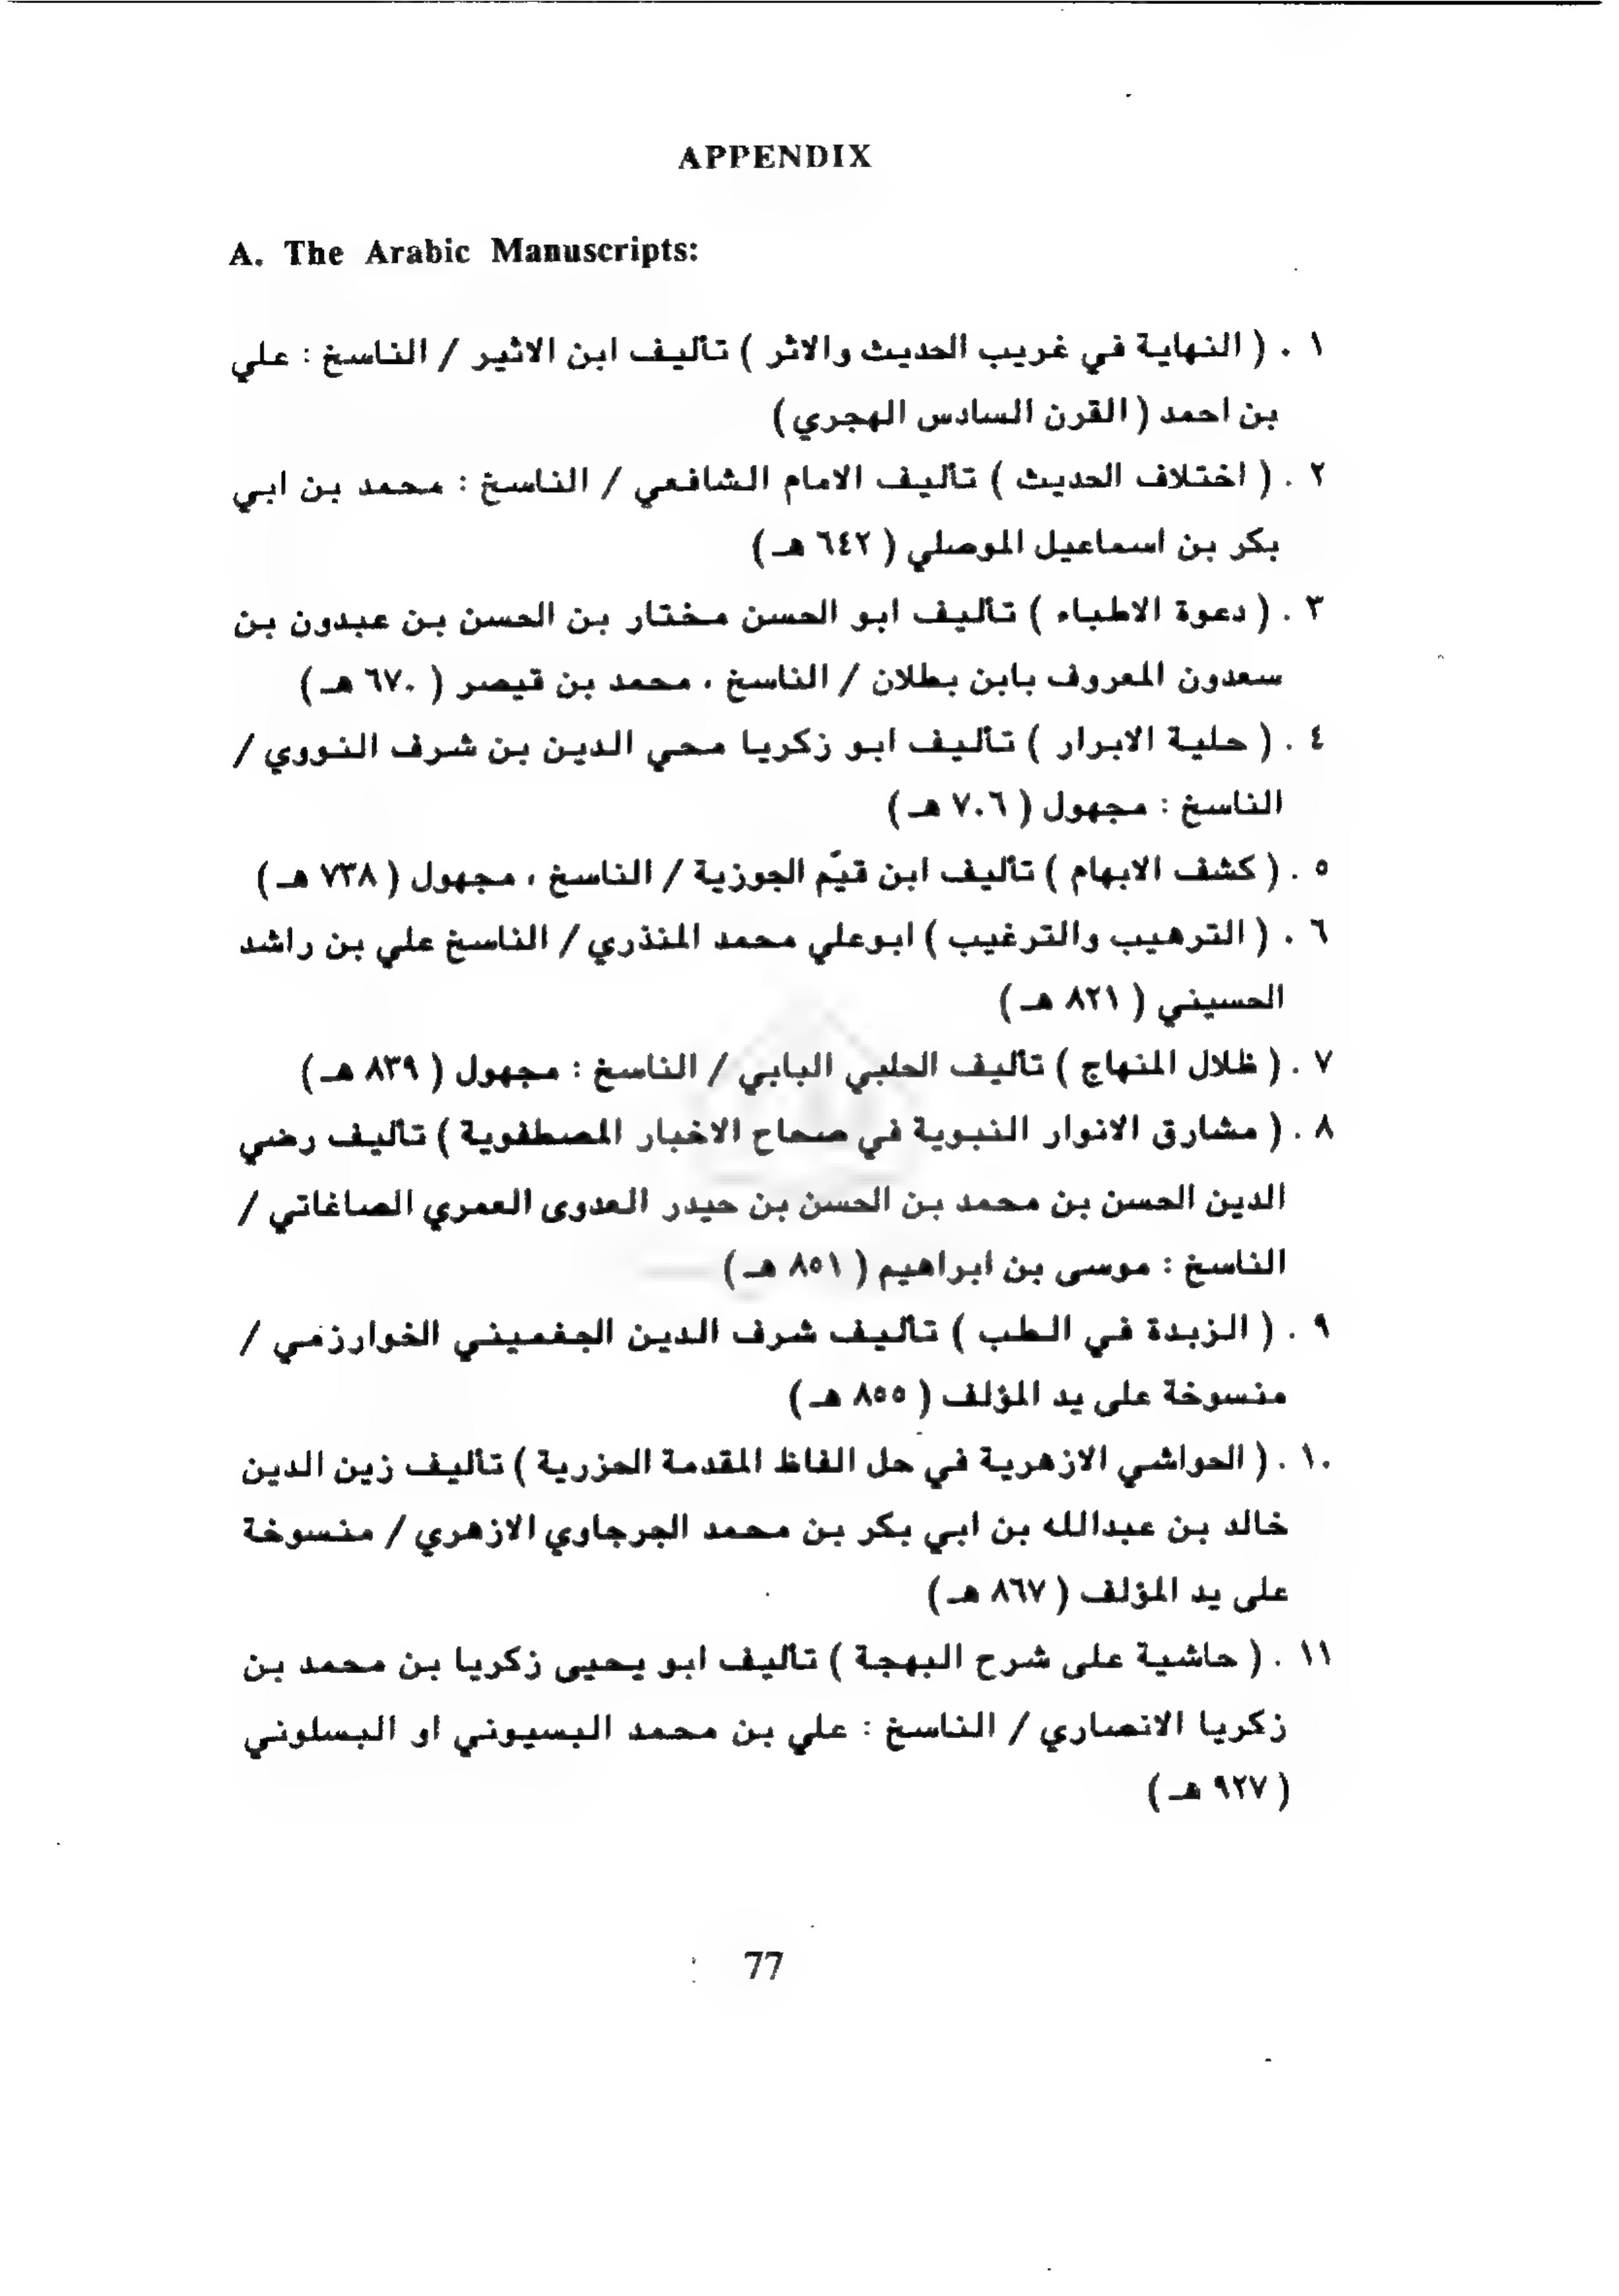 APPENDIX
A. The Arabic Manuscripts:
١ . ( النهاية في غريب الحديث والاثر ) تأليف ابن الاثير / الناسخ : علي
بن احمد ( القرن السادس الهجري )
٢ . ( اختلاف الحديث ) تأليف الامام الشافعي / الناسخ : محمد بن ابي
بكر بن اسماعيل الموصلي ( ٦٤٢ هـ )
٣ . ( دعوة الاطباء ) تأليف ابو الحسن مختار بن الحسن بن عبدون بن
سعدون المعروف بابن بطلان / الناسخ ، محمد بن قيصر ( ٦٧٠ هـ )
٤ . ( حلية الابرار ) تأليف ابو زكريا محي الدين بن شرف النووي /
الناسخ : مجهول ( ٧٠٦ هـ )
٥ . ( كشف الابهام ) تأليف ابن قيّم الجوزية / الناسخ ، مجهول ( ٧٣٨ هـ )
٦ . ( الترهيب والترغيب ) ابوعلي محمد المنذري / الناسخ علي بن راشد
الحسيني ( ٨٢١ هـ )
٧ . ( ظلال المنهاج ) تأليف الحلبي البابي / الناسخ : مجهول ( ٨٣٩ هـ )
٨ . ( مشارق الانوار النبوية في صحاح الاخبار المصطفوية ) تأليف رضي
الدين الحسن بن محمد بن الحسن بن حيدر العدوى العمري الصاغاتي /
الناسخ : موسى بن ابراهيم ( ٨٥١ هـ )
٩ . ( الزبدة في الطب ) تأليف شرف الدين الجغميني الخوارزمي /
منسوخة على يد المؤلف ( ٨٥٥ هـ )
١٠ . ( الحواشي الازهرية في حل الفاظ المقدمة الحزرية ) تأليف زين الدين
خالد بن عبدالله بن ابي بكر بن محمد الجرجاوي الازهري / منسوخة
على يد المؤلف ( ٨٦٧ هـ )
١١ . ( حاشية على شرح البهجة ) تأليف ابو يحيى زكريا بن محمد بن
زكريا الانصاري / الناسخ : علي بن محمد البسيوني او البسلوني
( ٩٢٧ هـ )
77